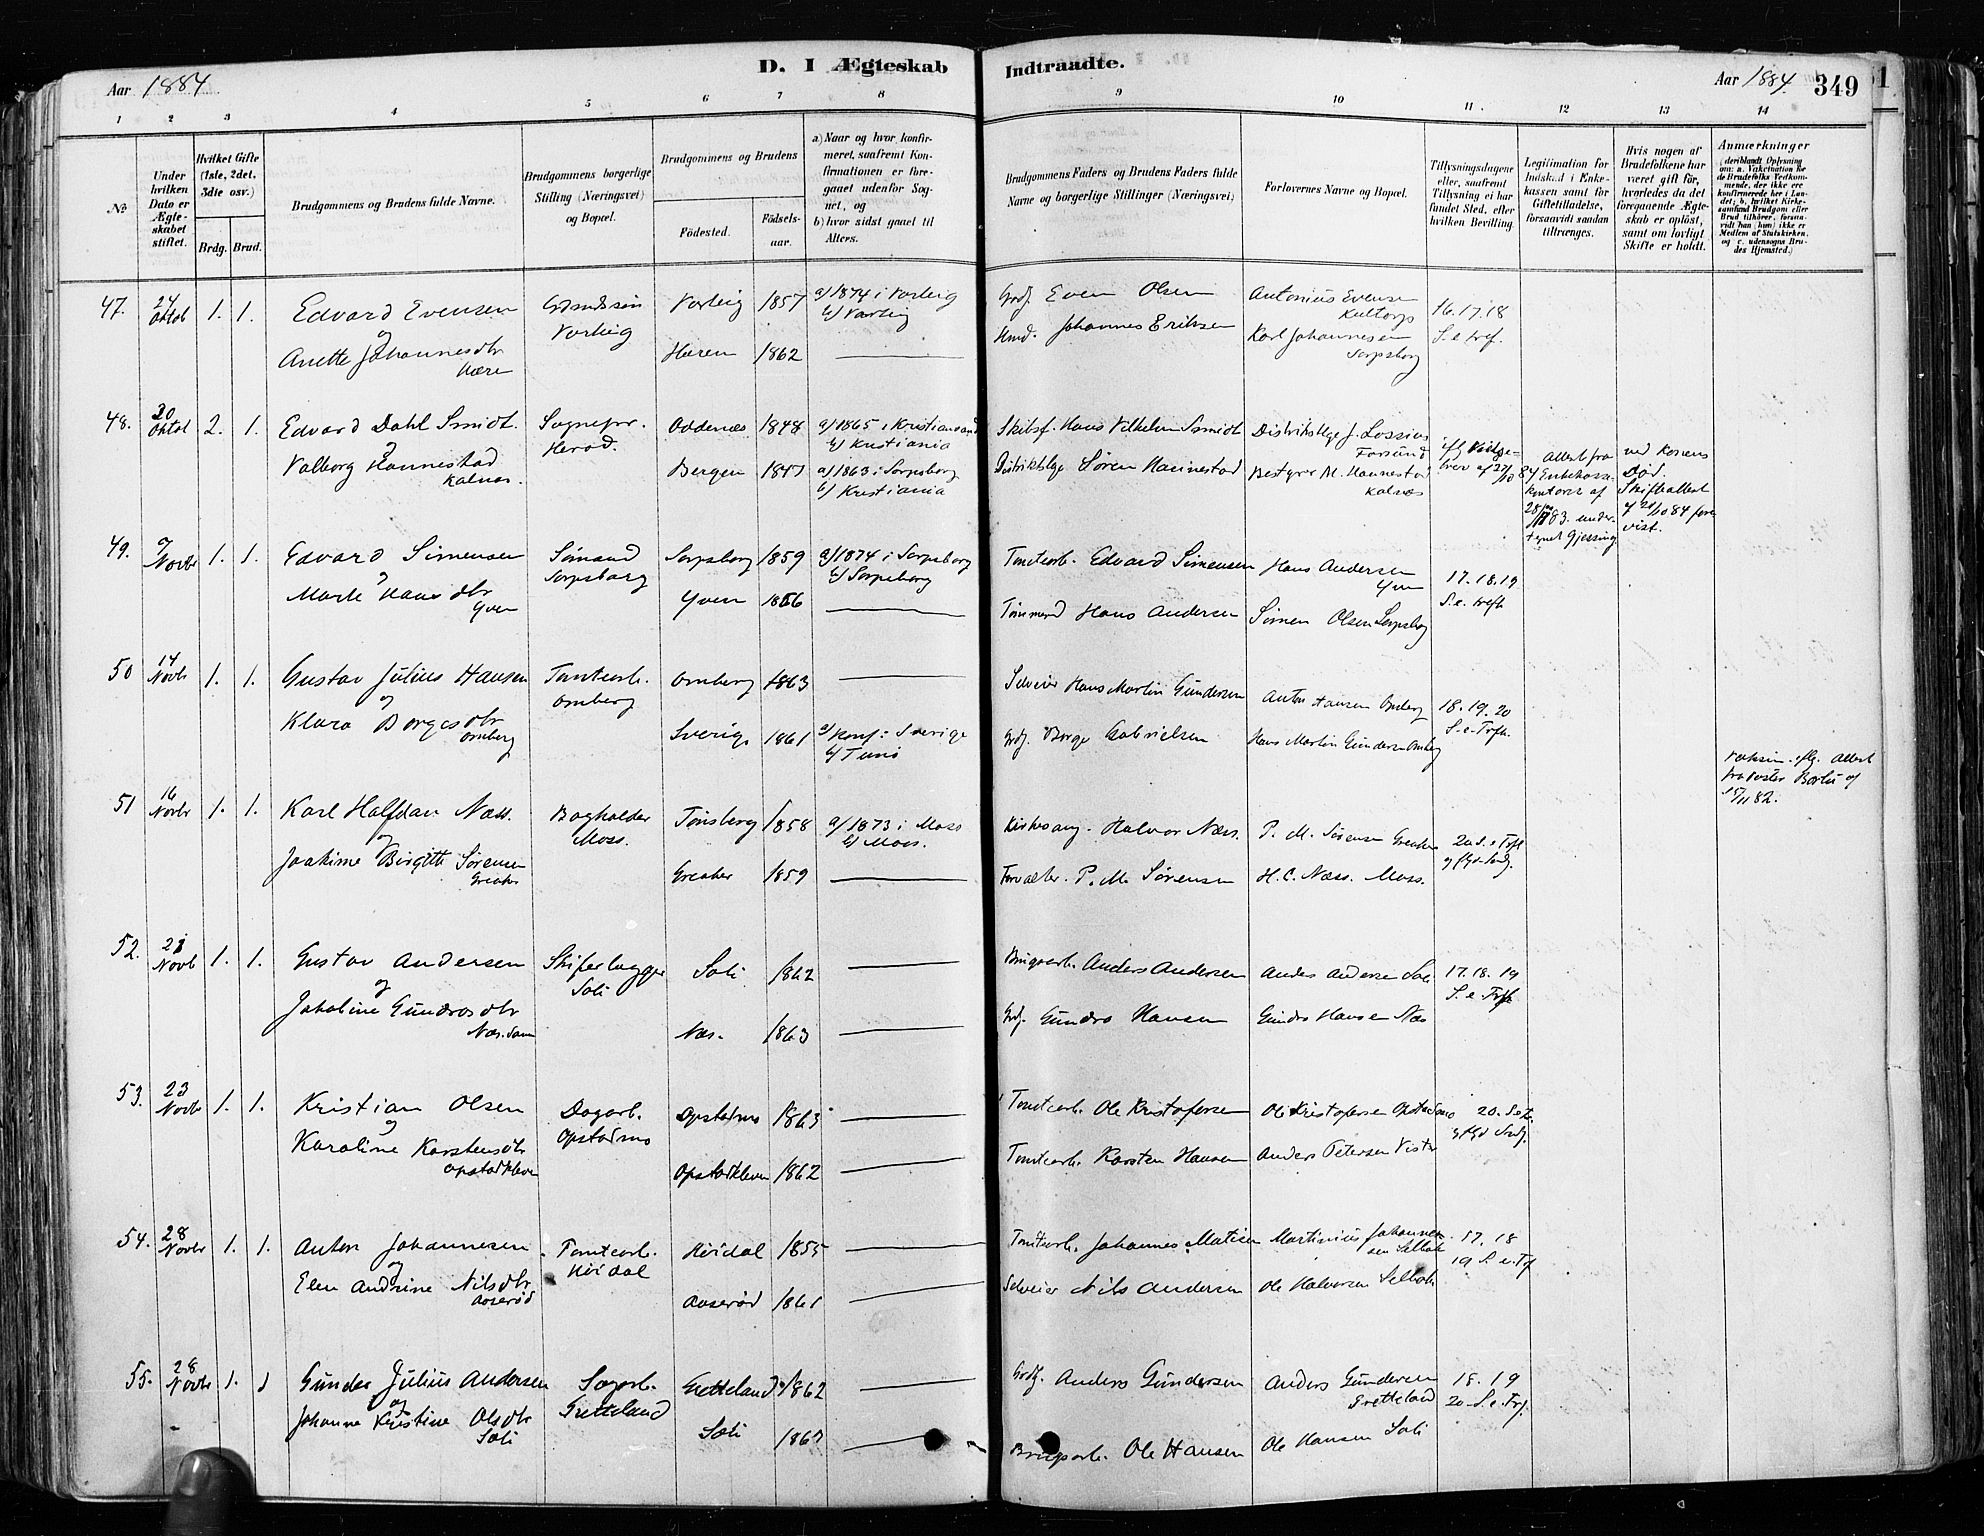 Aar 1884
D. I Ægteskab
Indtraadte.
Aar 1884.
349
1
2
3
4
5
6
7
8
9
10
11.
12
13
14
№
Under
hvilken
Dato er
Ægte-
skabet
stiftet.
Hvilket Gifte
(1ste, 2det,
3die osv.)
Brdg.
Brud.
Brudgommens og Brudens fulde Navne.
Brudgommens borgerlige
Stilling (Næringsvei)
og Bopæl.
Brudgommens og Brudens
Fødested.
Fødsels-
aar.
a) Naar og hvor konfir-
meret, saafremt Kon-
firmationen er fore-
gaaet udenfor Sog-
net, og
b) hvor sidst gaaet til
Alters.
Brudgommens Faders og Brudens Faders fulde
Navne og borgerlige Stillinger (Næringsvei)
Forlovernes Navne og Bopæl.
Tillysningsdagene
eller, saafremt
Tillysning ei har
fundet Sted, efter
hvilken Bevilling.
Legitimation for
Indskud i Enke-
kassen samt for
Giftetilladelse,
forsaavidt saadan
tiltrænges.
Hvis nogen af
Brudefolkene har
været gift før,
hvorledes da det
foregaaende Ægte-
skab er opløst,
samt om lovligt
Skifte er holdt.
Anmærkninger
(deriblandt Oplysning
om: a. Vakcination for
de Brudefolks Vedkom-
mende, der ikke ere
konfirmerede her i Lan-
det; b. hvilket Kirke-
samfund Brudgom eller
Brud tilhører, forsaa-
vidt han (hun) ikke er
Medlem af Statskirken,
og c. udensogns Bru-
des Hjemsted.)
47. 24 Oktob 1. 1. Edvard Evensen
og
Anette Johannesdtr
Hære
Varteig
Varteig 1857
a/ 1874 i Varteig
b/ Varteig
Haren 1862
Grdj. Even Olsen
Hmd. Johannes Eriksen
Antonius Evensen
Kultorp
Karl Johannesen
Sarpsborg
16. 17. 18
S. e tref.
48. 30 Oktob 2. 1. Edvard Dahl Smidt.
og
Valborg Hannestad
Kalnæs.
Sognepr.
Herød.
Oddernæs 1848
a/ 1865 i Kristiansand
b/ Kristiania
Bergen 1847
a/ 1863 i Sarpsborg
b/ Kristiania
Skibsf. Hans Vilhelm Smidt
Distriktslæge Søren Hannestad
Distriktslæge J. Lossius
Farsund
Bestyrer M. Hannestad
Kalnæs
brev af 27/10 84
Attest fra
Enkekasse-
kontoret af
under-
tegnet Gjessing
ved Konens
Død.
Skifteattest
af 21/10 84 fore
vist.
49. 7 Novbr 1. 1. Edvard Simensen
og
Marte Hansdtr
Yven
Sømand
Sarpsborg
Sarpsborg 1859
a/ 1874 i Sarpsborg
b/ Sarpsborg
Yven 1866
Tomtearb. Edvard Simensen
Tømmermd Hans Andersen
Hans Andersen
Yven
Simen Olsen Sarpsbg
17. 18. 19
S. e. trefh
50 14 Novb 1. 1. Gustav Julius Hansen
og
Klara Borgesdtr
Omberg
Tomtearb.
Omberg
Omberg 1863
Sverige 1861
a/ konf: Sverige
b/ Tunø
Selveier Hans Martin Gundersen
Grdj. Borge Gabrielsen
Anton Hansen Omberg
Hans Martin Gundersen Omberg
18. 19. 20
S. e. Trfh.
Vaksin. iflg. Attest
fra Pastor Bortu af
15/11 82.
51 16 Novbr 1. 1. Karl Halfdan Næss.
og
Joakime Birgitte Sørensen
Greaker
Bogholder
Moss.
Tønsberg 1858
a/ 1873 i Moss
b/ Moss.
Greaker 1859
Kirkesang. Halvor Næss.
Forvalter. P. M. Sørensen
P. M. Sørensen Greaker
H. C. Næss. Moss.
20 S. e Trfh
52. 21 Novb 1. 1. Gustav Andersen
og
Jakobine Gundrosdtr
Næs.
Skiferlægger
Soli
Soli. 1862
Næs. 1863
Brugsarb. Anders Andersen
Grdj. Gundro Hansen
Anders Andersen Soli
Gundro Hansen Næs
17. 18. 19
S. e. Trfh
53. 23 Novbr 1. 1. Kristian Olsen
og
Karoline Karstensdtr
Opstadkleven
Dagarb.
Opstadmo
Opstadmo 1863
Opstadkleven 1862
Tomtearb. Ole Kristofersen
Tomtearb. Karsten Hansen
Ole Kristofersen Opstadmo
Anders Petersen Vister
20. S. e. Tr.
54. 28 Novbr 1. 1. Anton Johannesen
og
Elen Andrine Nilsdtr
Aaserød
Tomtearb.
Høidal
Høidal 1855
Aaserød 1861
Tomtearb. Johannes Matisen
Selveier Nils Andersen
Martinius Johannes-
sen Selbak
Ole Halvorsen Selbak
17. 18
19 S. e. Trf
55. 28 Novbr 1. 1 Gunder Julius Andersen
og
Johanne Kristine Olsdtr
Soli
Sagarb.
Gretteland
Gretteland 1862
Soli 1867
Grdj. Anders Gundersen
Brugsarb. Ole Hansen
Anders Gundersen
Gretteland
Ole Hansen Soli
18. 19
20 S. e. Trf.